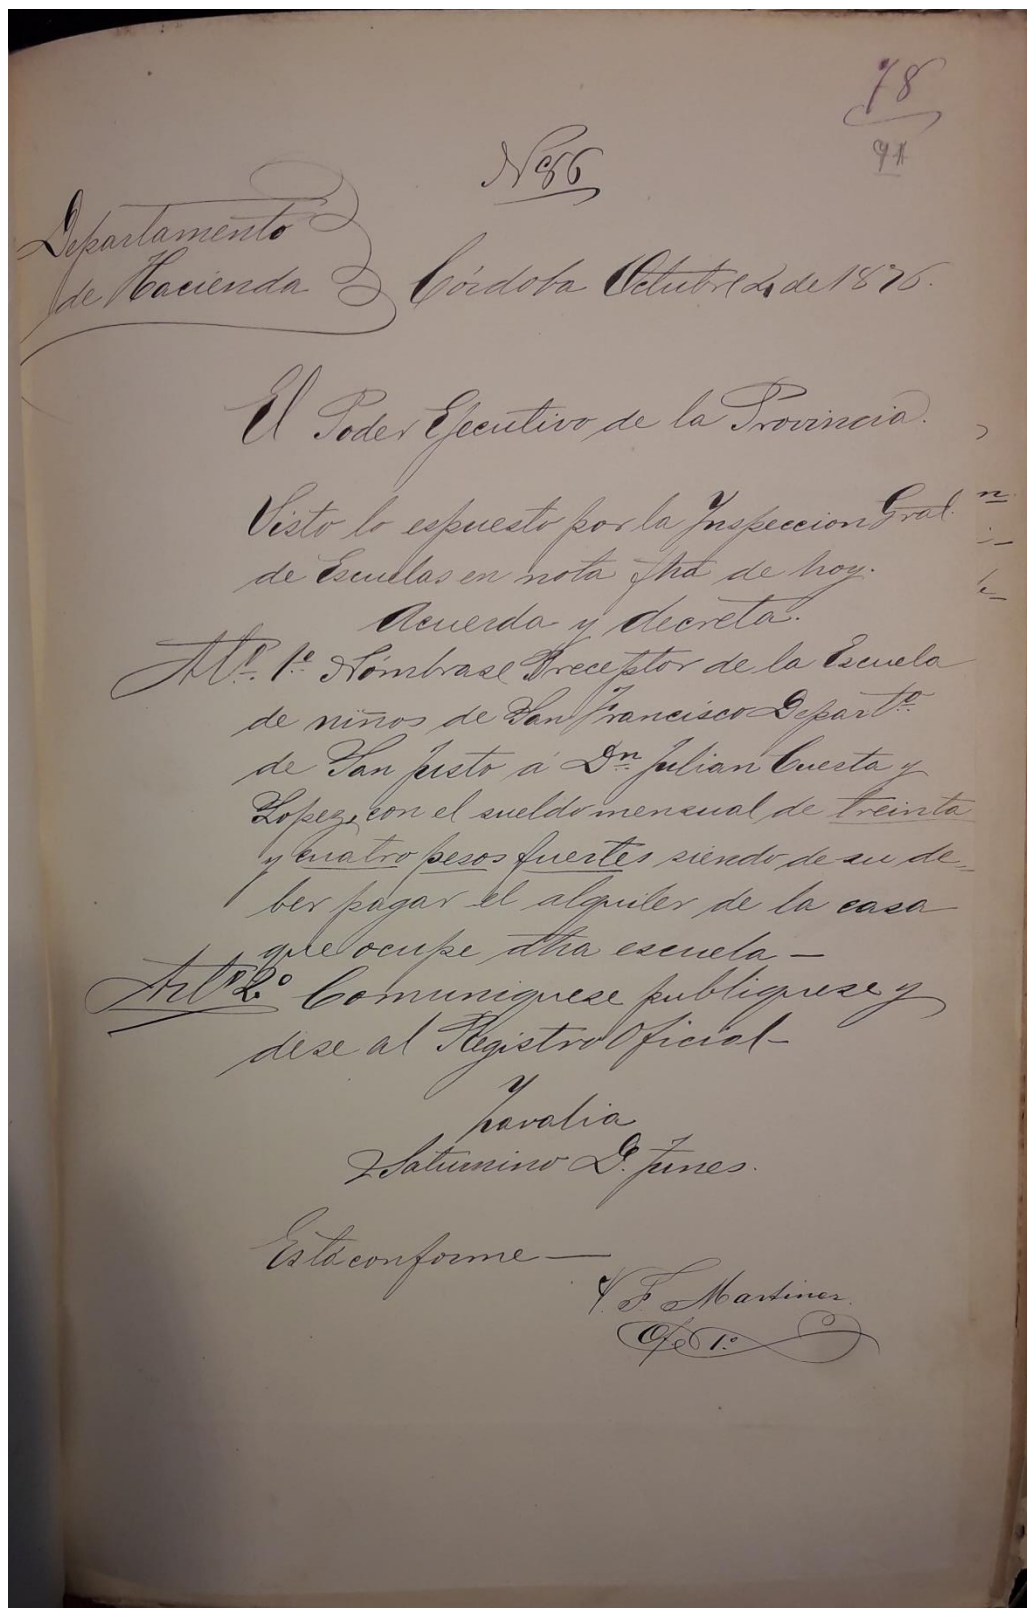 78
91
Nº 86
Departamento
de Hacienda
Córdoba Octubre 2, de 1876.
El Poder Ejecutivo de la Provincia.
Visto lo espuesto por la Inspeccion Gral.
de Escuelas en nota fha de hoy.
Acuerda y decreta.
Artº. 1º Nómbrase Preceptor de la Escuela
de niños de San Francisco Departº.
de San Justo á Dn. Julian Cuesta y
Lopez, con el sueldo mensual de treinta
y cuatro pesos fuertes siendo de su de=
ber pagar el alquiler de la casa
que ocupe dha escuela —
Artº 2º Comuniquese publiquese y
dese al Registro Oficial —
Zavalia
Saturnino D. Funes.
Está conforme —
F Martinez.
Of 1º